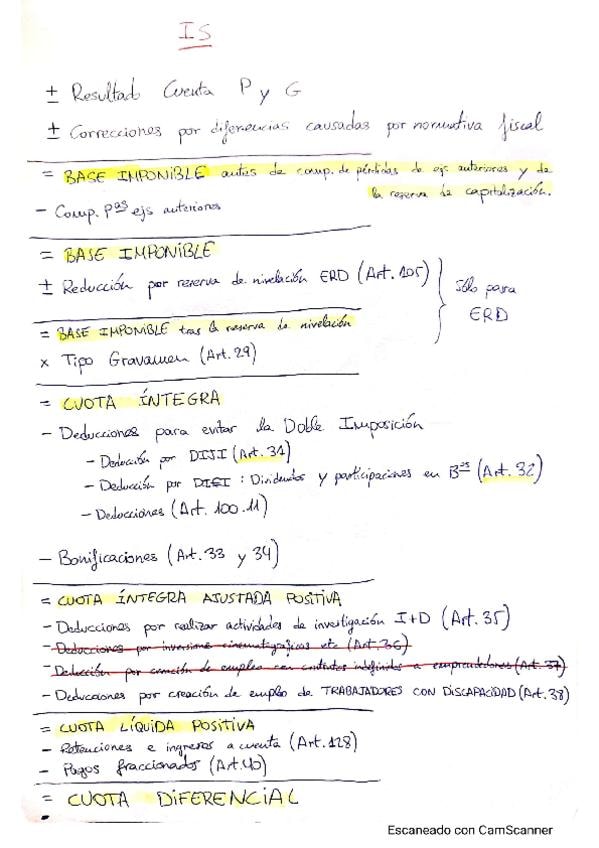 IS
± Resultado Cuenta P y G
± Correcciones por diferencias causadas por normativa fiscal
= BASE IMPONIBLE antes de comp. de pérdidas de ejs anteriores y de
la reserva de capitalización.
- Comp. Pas ejs anteriores
= BASE IMPONIBLE
± Reducción por reserva de nivelación ERD (Art. 105)
Sólo para
ERD
= BASE IMPONIBLE tras la reserva de nivelación
x Tipo Gravamen (Art. 29)
= CUOTA ÍNTEGRA
- Deducciones para evitar la Doble Imposición
- Deducción por DIJI (Art. 31)
- Deducción por DIEI : Dividendos y participaciones en Bos (Art. 32)
- Deducciones (Art. 100.11)
- Bonificaciones (Art. 33 y 34)
= CUOTA ÍNTEGRA AJUSTADA POSITIVA
- Deducciones por realizar actividades de investigación I+D (Art. 35)
- Deducciones por inversiones cinematográficas etc (Art. 36)
- Deducción por creación de empleo con contratos indefinidos a emprendedores (Art. 37)
- Deducciones por creación de empleo de TRABAJADORES CON DISCAPACIDAD (Art. 38)
= CUOTA LÍQUIDA POSITIVA
- Retenciones e ingresos a cuenta (Art. 128)
- Pagos fraccionados (Art. 40)
= CUOTA DIFERENCIAL
Escaneado con CamScanner